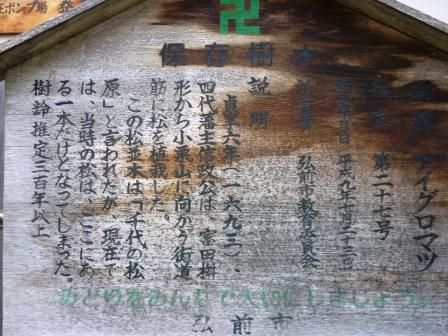 卍
保存樹木
アイグロマツ
指定 第二十七号
平成九年十月二十二日
弘前市教育委員会
説明
貞享六年(一六九三)、
四代藩主信政公は、富田枡
形から小栗山に向かう街道
筋に松を植栽した。
この松並木は「千代の松
原」と言われたが、現在で
は、当時の松は、ここにあ
る一本だけとなってしまった。
樹齢推定三百年以上
みどりをみんなで大切にしましょう。
弘前市